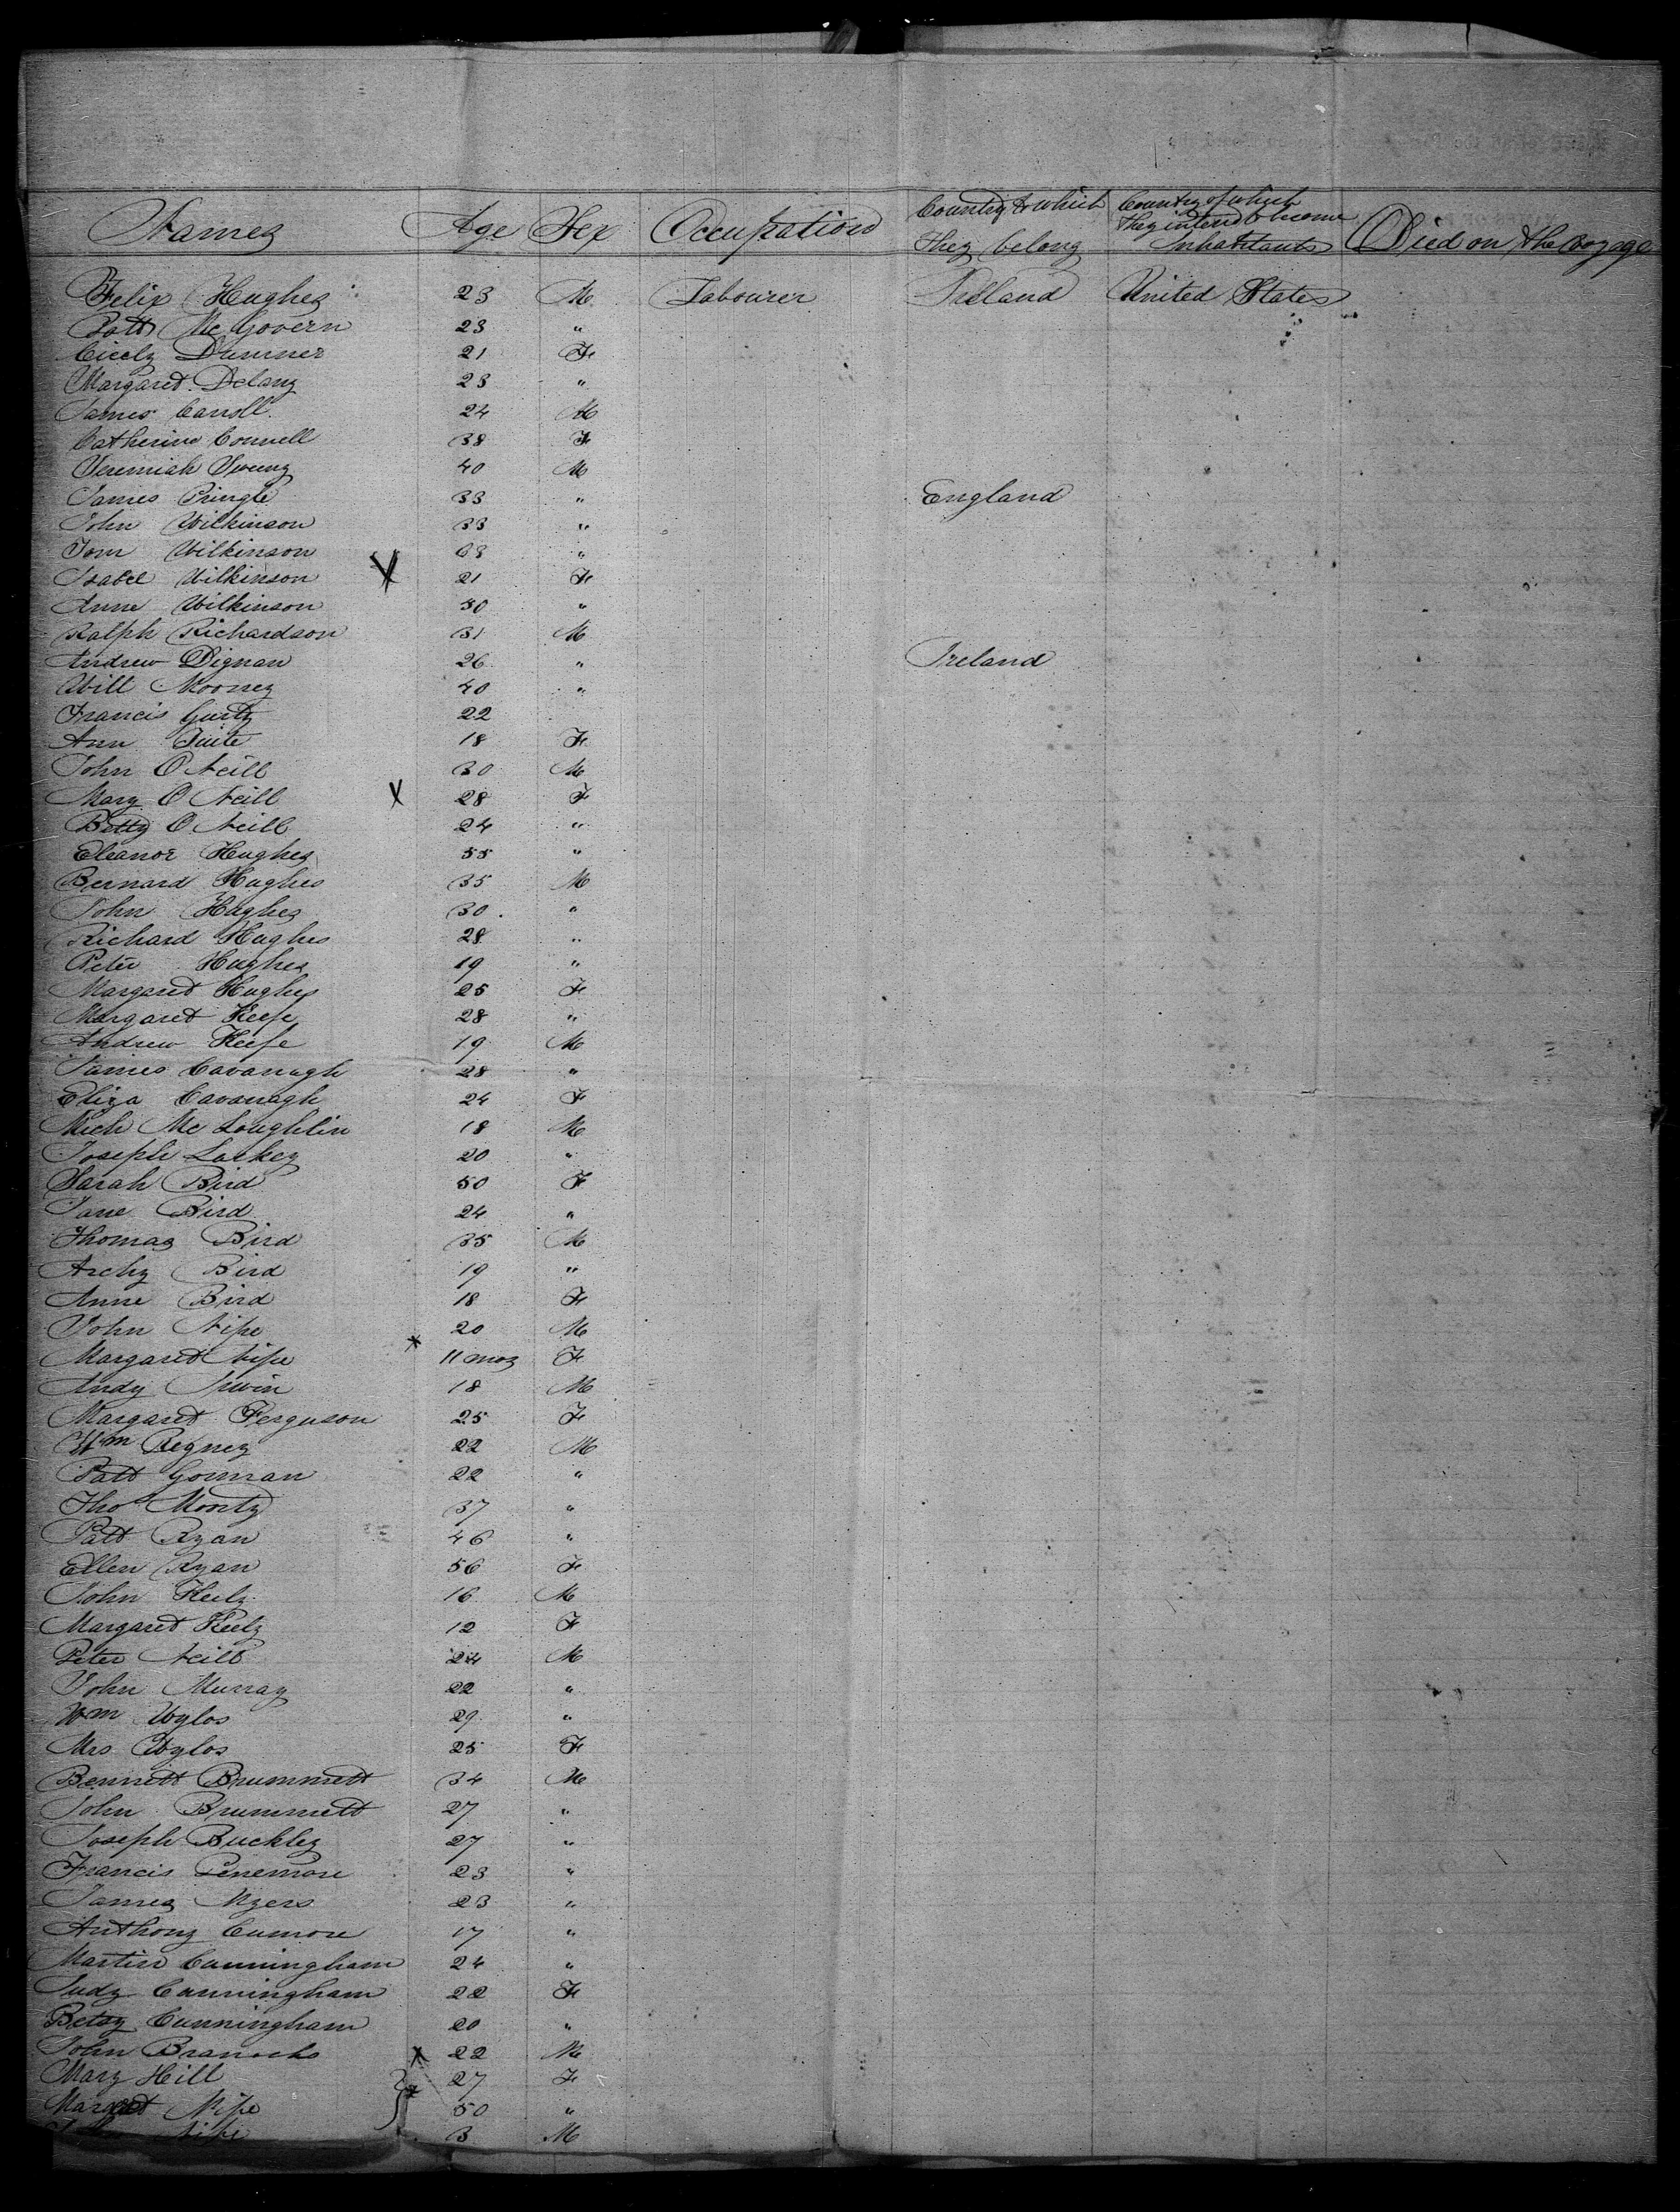 Names Age Sex Occupation Country to which they belong Country of which they intend to become Inhabitants Died on the Voyage
Felix Hughes 23 M Labourer Ireland United States
Patt McGovern 23 "
Cicely Dummer 21 F
Margaret Delany 23 "
James Caroll 24 M
Catherine Connell 38 F
Jeremiah Sweeny 40 M
James Pringle 33 " England
John Wilkinson 33 "
Tom Wilkinson 33 "
Isabel Wilkinson X 21 F
Anne Wilkinson 50 "
Ralph Richardson 31 M
Andrew Dignan 26 " Ireland
Will Mooney 40 "
Francis 22
Ann Tuite 18 F
John O Neill 30 M
Mary O Neill X 28 F
Betty O Neill 24 "
Eleanor Hughes 55 "
Bernard Hughes 35 M
John Hughes 30 "
Richard Hughes 28 "
Peter Hughes 19 "
Margaret Hughes 25 F
Margaret Keefe 28 "
Andrew Keefe 19 M
James Cavanagh 28 "
Eliza Cavanagh 24 F
Mich Mc Loughlin 18 M
Joseph Larkey 20 "
Sarah Bird 50 F
Jane Bird 24 "
Thomas Bird 35 M
Archy Bird 19 "
Anne Bird 18 F
John Nipe 20 M
Margaret Nipe X 11 mos F
Andy Irwin 18 M
Margaret Ferguson 25 F
Wm Regney 22 M
Patt Gorman 22 "
Tho Monty 37 "
Patt Ryan 46 "
Ellen Ryan 56 F
John Keely 16 M
Margaret Keely 12 F
Peter Neill 24 M
John Murray 22 "
Wm Wylos 29 "
Mrs Wylos 25 F
Bennett Brummett 34 M
John Brummett 27 "
Joseph Buckley 27 "
Francis Penemore 23 "
James Myers 23 "
Anthony Cumore 17 "
Martin Cunningham 24 "
Judy Cunningham 22 F
Betsy Cunningham 20 "
John X 22 M
Mary Hill 27 F
Margaret Nipe 50 "
Nipe 3 M